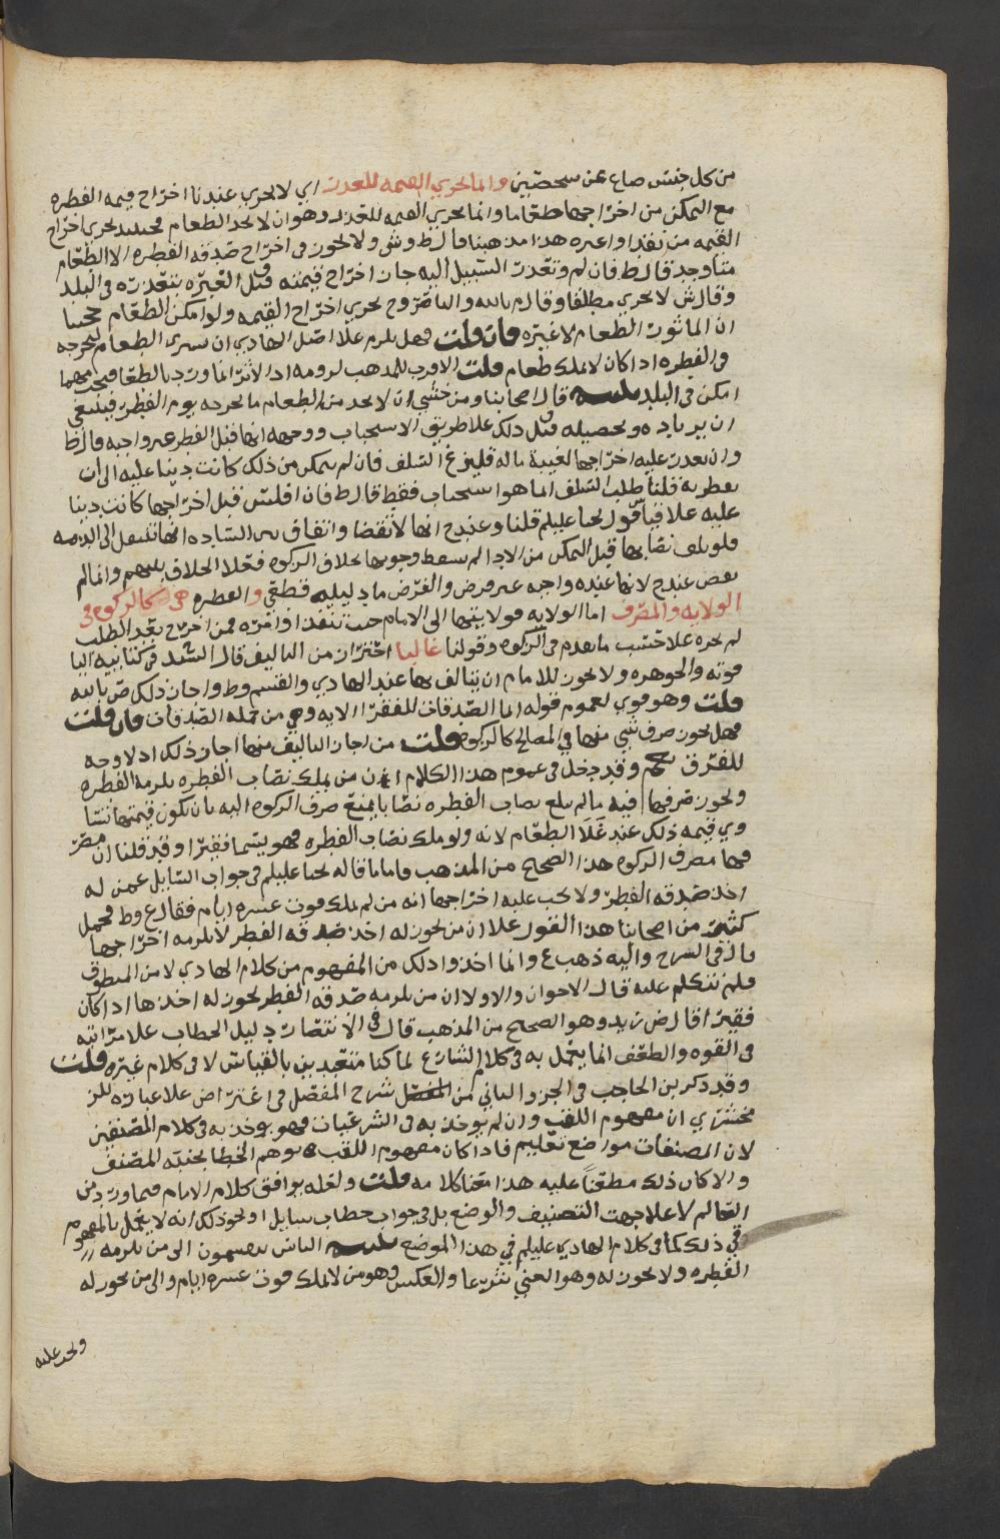 من كل جنس صاع عن شخصين وانما تجزي القيمه للعذر اي لا تجزي عندنا اخراج قيمه الفطره
مع التمكن من اخراجها طعاما وانما تجزي القيمه للعذر وهو ان لا يجد الطعام فحينئذ تجزي اخراج
القيمه من نقد او غيره هذا مذهبنا قال ط وش ولا يجوز في اخراج صدقه الفطره الا الطعام
متا وجد قال ط فان لم وتعذرت السبيل اليه جاز اخراج قيمته وقيل العبره بتعذره في البلد
وقال ش لا تجزي مطلقا وقال م بالله والناصر وح تجزي اخراج القيمه ولو امكن الطعام حجتنا
ان الماثور الطعام لا غيره فان قلت فهل يلزم علا اصل الهادي ان يشري الطعام ليخرجه
في الفطره اذا كان لا يملك طعام قلت الاقرب للمذهب لزومه اذ الاثر انما ورد بالطعام فيجب مهما
امكن في البلد تنبيه قال اصحابنا ومن خشي ان لا يجد من الطعام ما يخرجه يوم الفطر فينبغي
ان يرتاده وتحصيله قبل ذلك علا طريق الاستحباب ووجهه انها قبل الفطر غير واجبه قال ط
وان تعذر عليه اخراجها لغيبة ماله فليفزع الى السلف فان لم يتمكن من ذلك كانت دينا عليه الى ان
يظفر به قلنا طلب السلف انما هو استحباب فقط قال ط فان افلس قبل اخراجها كانت دينا
عليه علا قياس قول يحيا عليلم قلنا وعند ح انها لا تقضا واتفاق بين الساده انها تنتقل الى الذمه
فلو تلف نصابها قبل التمكن من الادا لم يسقط وجوبها بخلاف الزكوه فعلا الخلاف بينهم وانما لم
تقض عند ح لانها عنده واجبه غير فرض والفرض ما دليله قطعي والفطره هي كالزكوه في
الولايه والمصرف اما الولايه فولايتها الى الامام حيث تنفذ اوامره فمن اخرج بعد الطلب
لم يجزه علا حسب ما تقدم في الزكوه وقولنا غالبا احتراز من التاليف قال السيد في كتابيه اليا
قوته والجوهره ولا يجوز للامام ان يتالف بها عند الهادي والقسم وط واجاز ذلك ض بالله
قلت وهو قوي لعموم قوله انما الصدقات للفقرا الايه وهي من جمله الصدقات فان قلت
فهل يجوز صرف شي منها في المصالح كالزكوه قلت من اجاز التاليف منها اجاز ذلك اذ لا وجه
للفرق نعم وقد دخل في عموم هذا الكلام ان من يملك نصاب الفطره يلزمه الفطره
ويجوز صرفها فيه ما لم يبلغ نصاب الفطره نصابا يمنع صرف الزكوه اليه بان يكون قيمتها نسا
وي قيمه ذلك عند غلا الطعام لانه ولو ملك نصاب الفطره فهو يسما فقيرا وقد قلنا ان مصر
فها مصرف الزكوه هذا الصحيح من المذهب فاما ما قاله يحيا عليلم في جواب السايل عمن له
اخذ صدقه الفطر ولا تجب عليه اخراجها انه من لم يملك قوت عشره ايام فقال ع وط فحمل
كثير من اصحابنا هذا القول علا ان من يجوز له اخذ صدقه الفطر لا يلزمه اخراجها
قال في الشرح واليه ذهب ع وانما اخذوا ذلك من المفهوم من كلام الهادي لا من المنطوق
فلم نتكلم عليه قال الاخوان والاولا ان من يلزمه صدقه الفطر يجوز له اخذها اذا كان
فقيرا قال ض زيد وهو الصحيح من المذهب قال في الانتصار دليل الخطاب علا مراتبه
في القوه والضعف انما يعمل به في كلام الشارع لما كنا متعبدين بالقياس لا في كلام غيره قلت
وقد ذكر بن الحاجب في الجزو الثاني من المفصل شرح المفصل في اعتراض علا عباره للز
مخشري ان مفهوم اللقب وان لم يوخذ به في الشرعيات فهو يوخذ به في كلام المصنفين
لان المصنفات مواضع تعليم فاذا كان مفهوم اللقب يوهم الخطا يجنبه المصنف
والا كان ذلك مطعنا عليه هذا معنا كلامه قلت ولعله يوافق كلام الامام فيما ورد من
العالم لا علا جهت التصنيف والوضع بل في جواب خطاب سايل او نحو ذلك انه لا يعمل بالمفهوم
في ذلك كما في كلام الهادي عليلم في هذا الموضع تنبيه الناس ينقسمون الى من يلزمه
الفطره ولا يجوز له وهو الغني شرعا والعكس وهو من لا يملك قوت عشره ايام والى من يجوز له
وتجب عليه